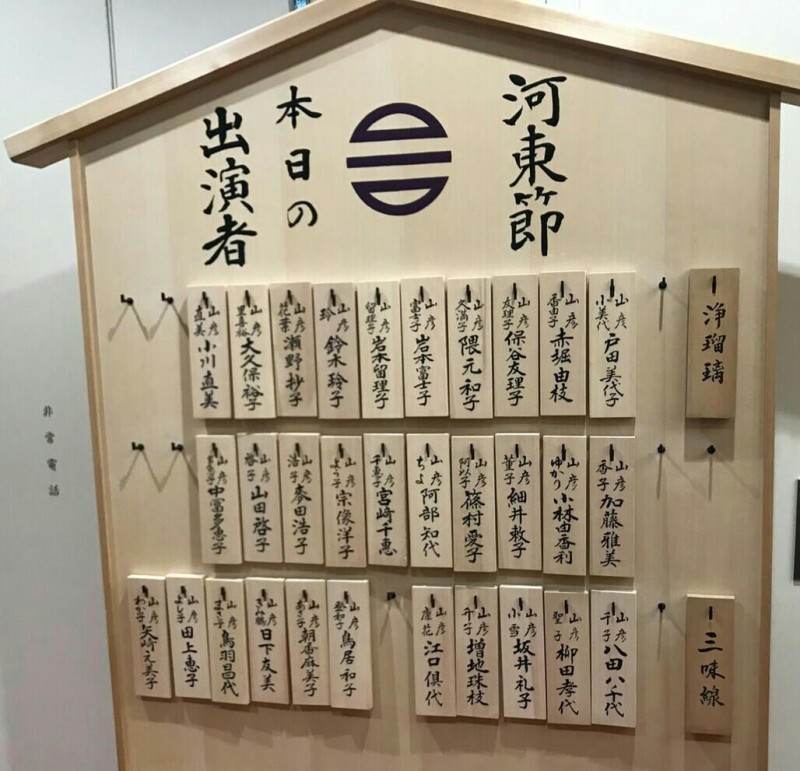 河東節
本日の
出演者
浄瑠璃
山彦 小美代 戸田美代子
山彦 香由子 赤堀由枝
山彦 友理子 保谷友理子
山彦 久満子 隈元和子
山彦 富士子 岩本富士子
山彦 留理子 岩本留理子
山彦 玲 鈴木玲子
山彦 花葉 瀬野抄子
山彦 大久保裕子
山彦 直美 小川直美
山彦 香子 加藤雅美
山彦 ゆかり 小林由香利
山彦 菫子 細井敦子
山彦 篠村愛子
山彦 ちよ 阿部知代
山彦 千恵子 宮崎千恵
山彦 よう子 宗像洋子
山彦 浩子 麥田浩子
山彦 啓子 山田啓子
山彦 中富多恵子
三味線
山彦 千子 八田八千代
山彦 聖子 柳田孝代
山彦 小雪 坂井礼子
山彦 升子 増地珠枝
山彦 江口倶代
山彦 登和子 鳥居和子
山彦 あさ子 朝香麻美子
山彦 日下友美
山彦 まさ子 鳥羽昌代
山彦 よし子 田上恵子
山彦 わか子 矢崎元美子
非常電話